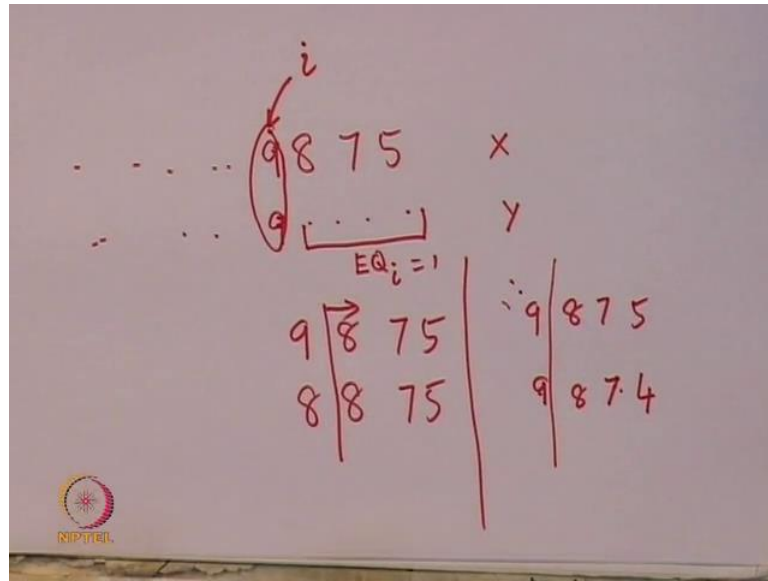 i
. . . .. 9 8 7 5 X
.. .. 9 . . . . Y
EQi = 1
9 | 8 7 5
8 | 8 7 5
∴ 9 | 8 7 5
9 | 8 7 . 4
NPTEL